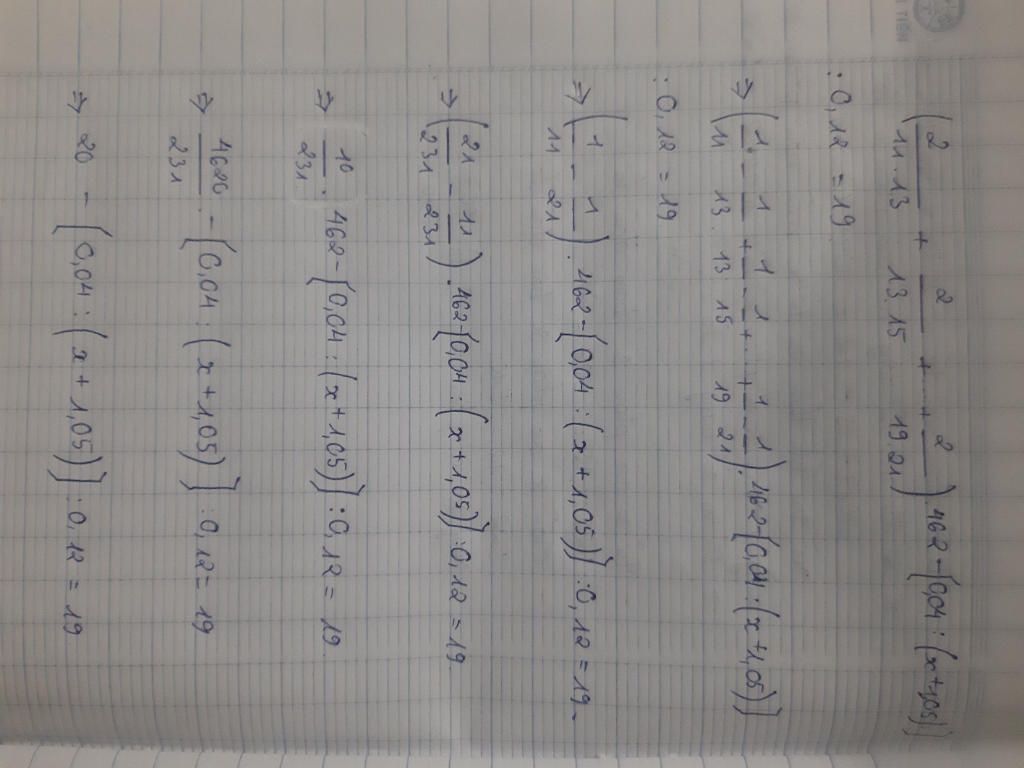 (2/11.13 + 2/13.15 + ... + 2/19.21) 462 - [0,04 : (x + 1,05)]
: 0,12 = 19
⇒ (1/11 - 1/13 + 1/13 - 1/15 + ... + 1/19 - 1/21) . 462 - [0,04 : (x + 1,05)]
: 0,12 = 19
⇒ (1/11 - 1/21) . 462 - [0,04 : (x + 1,05)] : 0,12 = 19
⇒ (21/231 - 11/231) . 462 - [0,04 : (x + 1,05)] : 0,12 = 19
⇒ 10/231 . 462 - [0,04 : (x + 1,05)] : 0,12 = 19
⇒ 4620/231 . - [0,04 : (x + 1,05)] : 0,12 = 19
⇒ 20 - [0,04 : (x + 1,05)] : 0,12 = 19